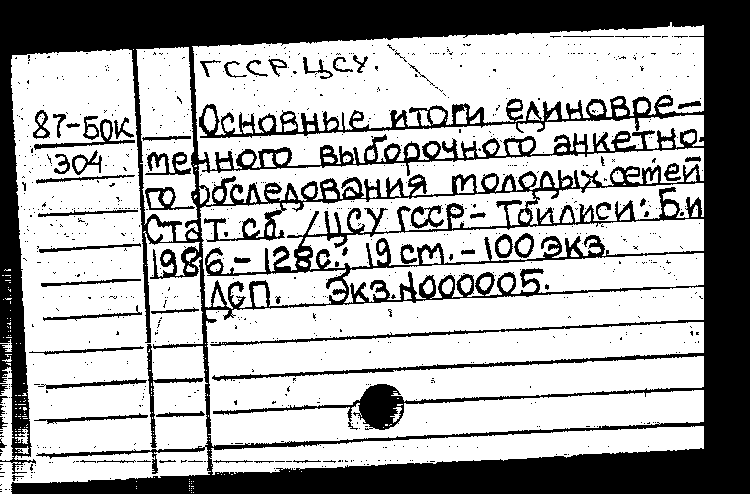 ГССР. ЦСУ.
87-БОК Основные итоги единовре-
Э04 менного выборочного анкетно-
го обследования молодых семей
Стат. сб. /ЦСУ ГССР.- Тбилиси: Б.и
1986.- 128с.; 19 см. - 100 экз.
ДСП. Экз.№000005.